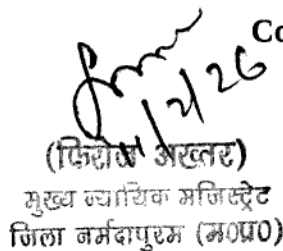 Co
1/2/26
(फिरोज अख्तर)
मुख्य न्यायिक मजिस्ट्रेट
जिला नर्मदापुरम (म0प्र0)